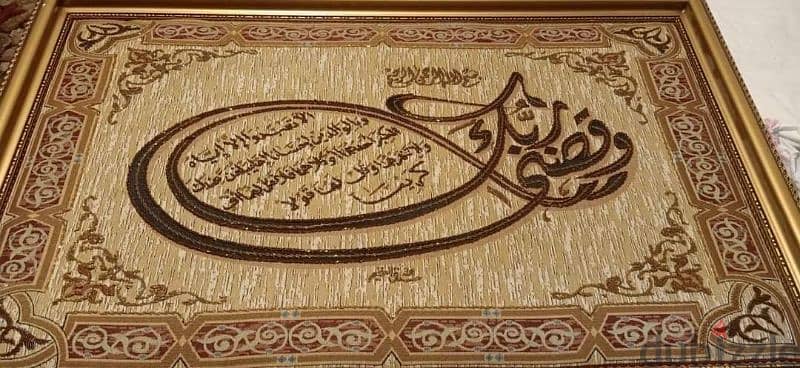 بسم الله الرحمن الرحيم
وقضى ربك
ألا تعبدوا إلا إياه
وبالوالدين إحسانا إما يبلغن عندك
الكبر أحدهما أو كلاهما فلا تقل لهما أف
ولا تنهرهما وقل لهما قولا
كريما
صدق الله العظيم
dubizzle